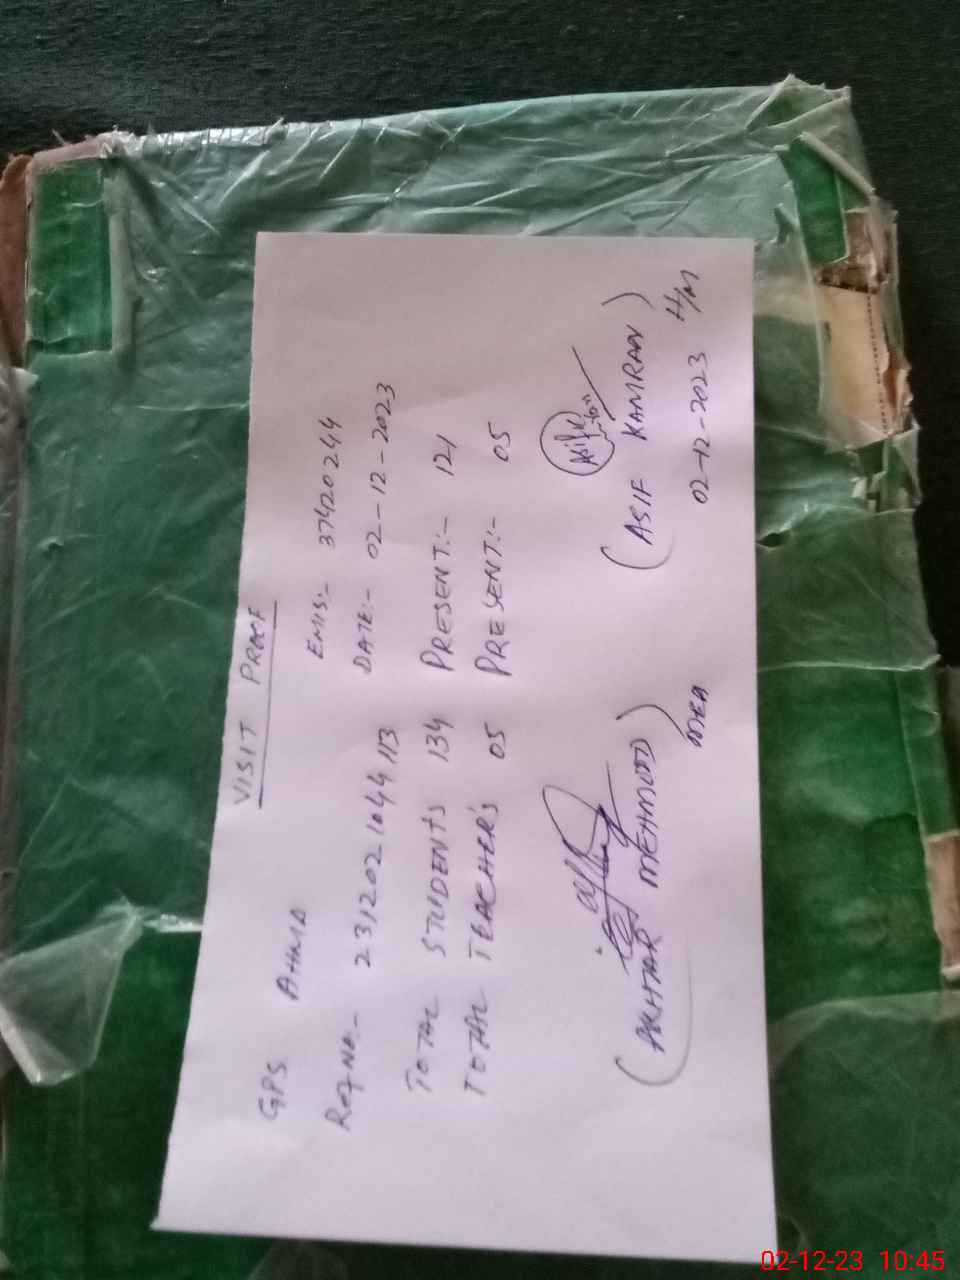 VISIT PROOF
GPS AHMD EMIS:- 37420244
Ref No:- 231202 1044 113 DATE:- 02-12-2023
TOTAL STUDENTS 134 PRESENT:- 121
TOTAL TEACHER'S 05 PRESENT:- 05
(AKHTAR MEHMOOD) (ASIF KAMRAN)
MEA 02-12-2023 H/M
02-12-23 10:45